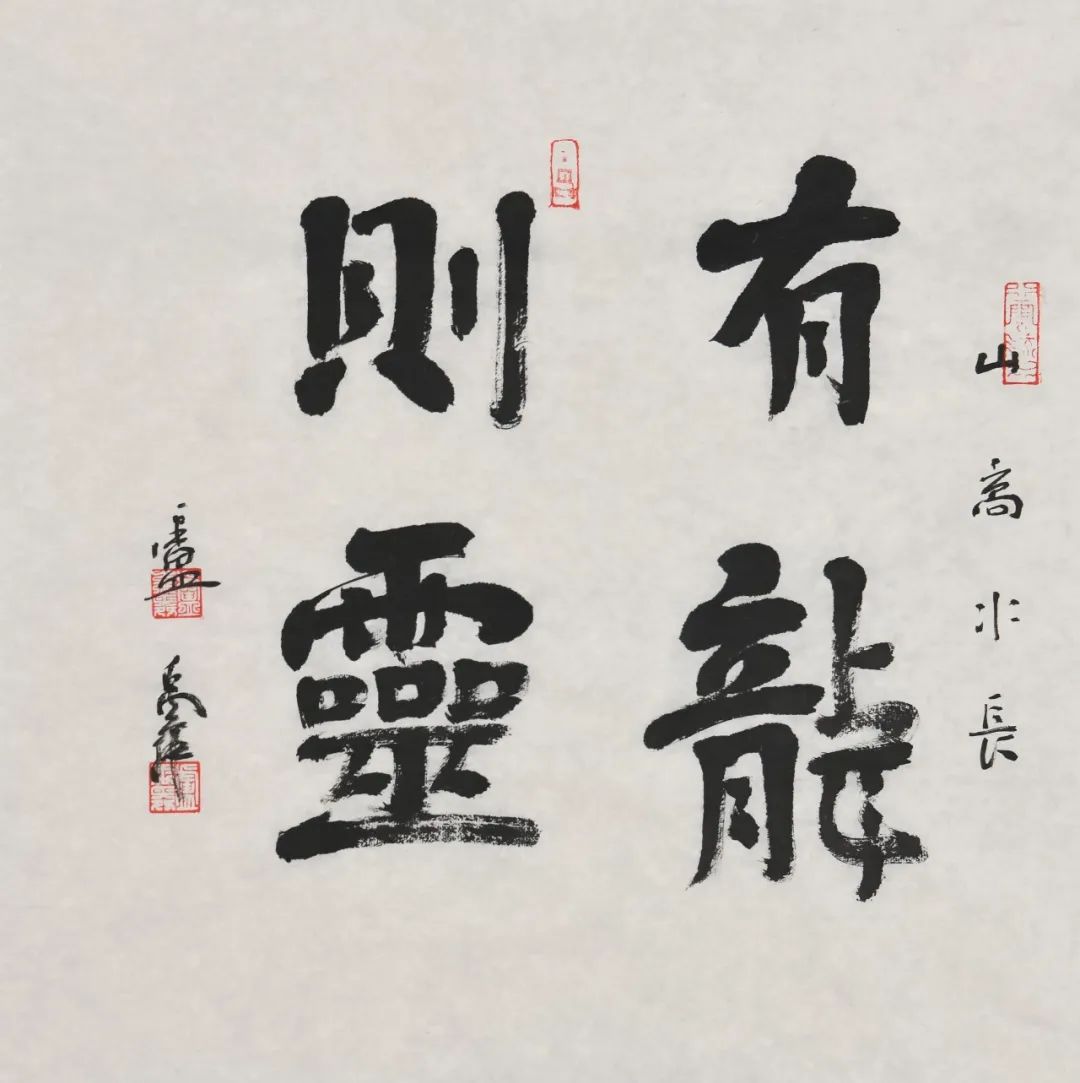 山高水長
有龍
則靈